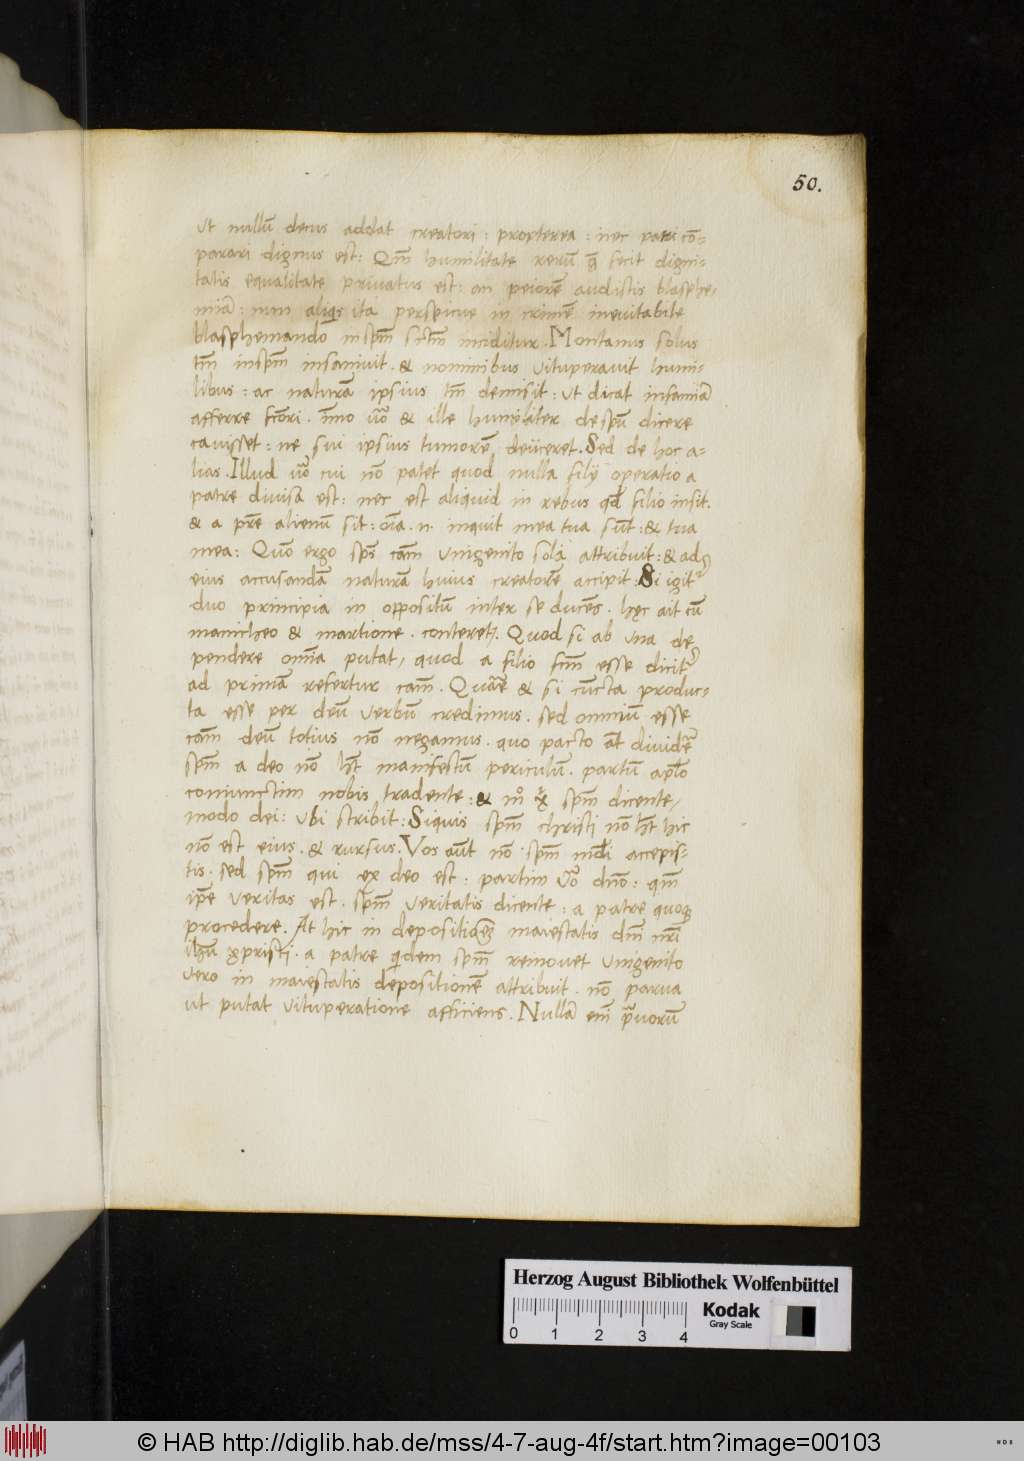 50.
ut nullū decus addat creatori : propterea : nec patri cō=
parari dignus est : Qm̄ humilitate rerū q̄ fecit digni=
tatis equalitate privatus est : an peiorē audistis blasphe=
miā : num aliqs ita perspicue in crimē inevitabile
blasphemando in spm̄ sc̄tm inciditur . Montanus solus
tm̄ in spm̄ insanivit . & nominibus vituperavit humi=
libus : ac naturā ipsius tm̄ demisit : ut dicat infamiā
afferre fctori . īmo u̅o & ille humiliter de spū dicere
cavisset : ne sui ipsius tumorē deiiceret . Sed de hoc a=
lias . Illud u̅o cui nō patet quod nulla filij operatio a
patre divisa est : nec est aliquid in rebus qd̄ filio insit .
& a pr̄e alienū sit : oīa . n . inquit mea tua sūt : & tua
mea : Quō ergo sps̄ cām unigenito soli attribuit : & ad
eius accusandā naturā huius creatorē accipit : Si igitr
duo principia in oppositū inter se ducēs . hęc ait cū
manicheo & martione . conteret . Quod si ab una de
pendere omīa putat , quod a filio fcm̄ esse dicitr
ad primā refertur cām . Quāre & si cūcta produc=
ta esse per deū verbū credimus . sed omniū esse
cām deū totius nō negamus . quo pacto āt dividēr
spm̄ a deo nō h̄t manifestū periculū . partū apl̄o
coniunctim nobis tradente : & mº x̄ spm̄ dicente ,
modo dei : ubi scribit : Siquis spm̄ christi nō h̄t hic
nō est eius . & rursus . Vos aūt nō spm̄ mūdi accepis=
tis . sed spm̄ qui ex deo est : partim u̅o dnō : qm̄
ip̄e veritas est . spm̄ veritatis dicente : a patre quoq
procedere . At hic in depositionē maiestatis dm̄ nr̄i
ihū xpristi . a patre qidem spm̄ removet unigenito
vero in maiestatis depositionē attribuit . nō parva
ut putat vituperatione afficiens . Nullā em̄ pravorū
Herzog August Bibliothek Wolfenbüttel
0 1 2 3 4
Kodak
Gray Scale
© HAB http://diglib.hab.de/mss/4-7-aug-4f/start.htm?image=00103